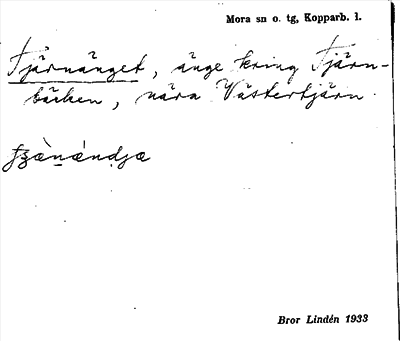 Mora sn o. tg, Kopparb. l.
Tjärnänget, änge kring Tjärn-
bäcken, nära Västertjärn.
Bror Lindén 1933